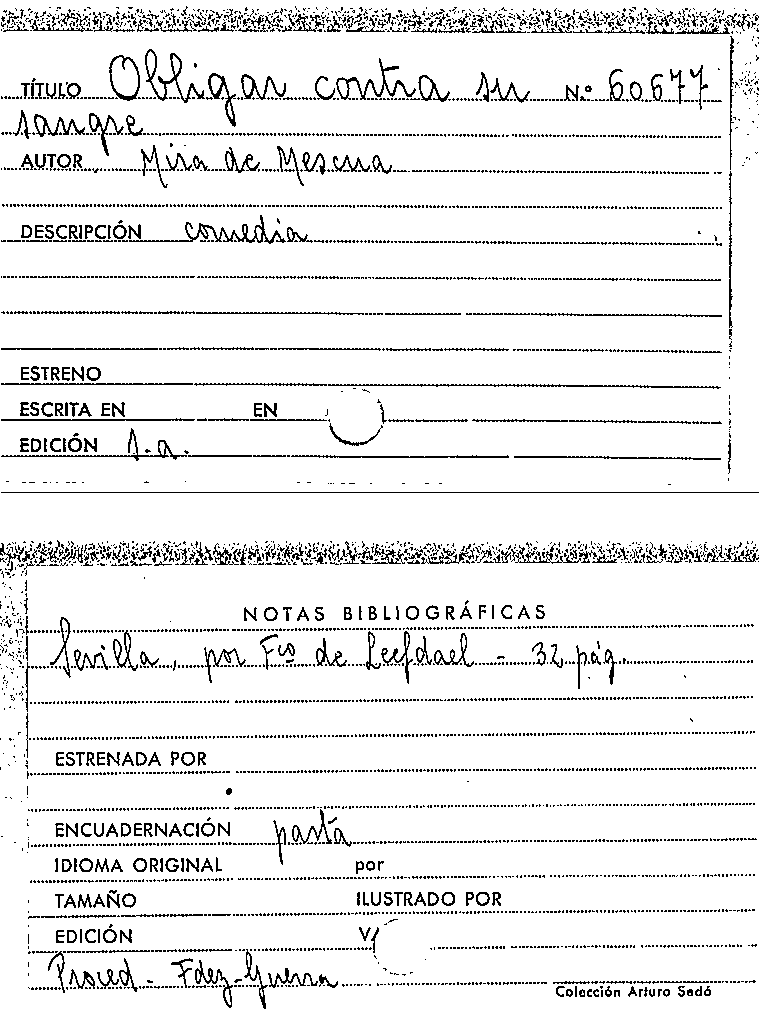 TÍTULO Obligar contra su N.º 60677
sangre
AUTOR Mira de Mescua
DESCRIPCIÓN comedia
ESTRENO
ESCRITA EN EN
EDICIÓN s.a.
NOTAS BIBLIOGRÁFICAS
Sevilla, por Fco de Leefdael - 32 pág.
ESTRENADA POR
ENCUADERNACIÓN pasta
IDIOMA ORIGINAL por
TAMAÑO ILUSTRADO POR
EDICIÓN V/
Proced - Fdez-Guerra
Colección Arturo Sedó